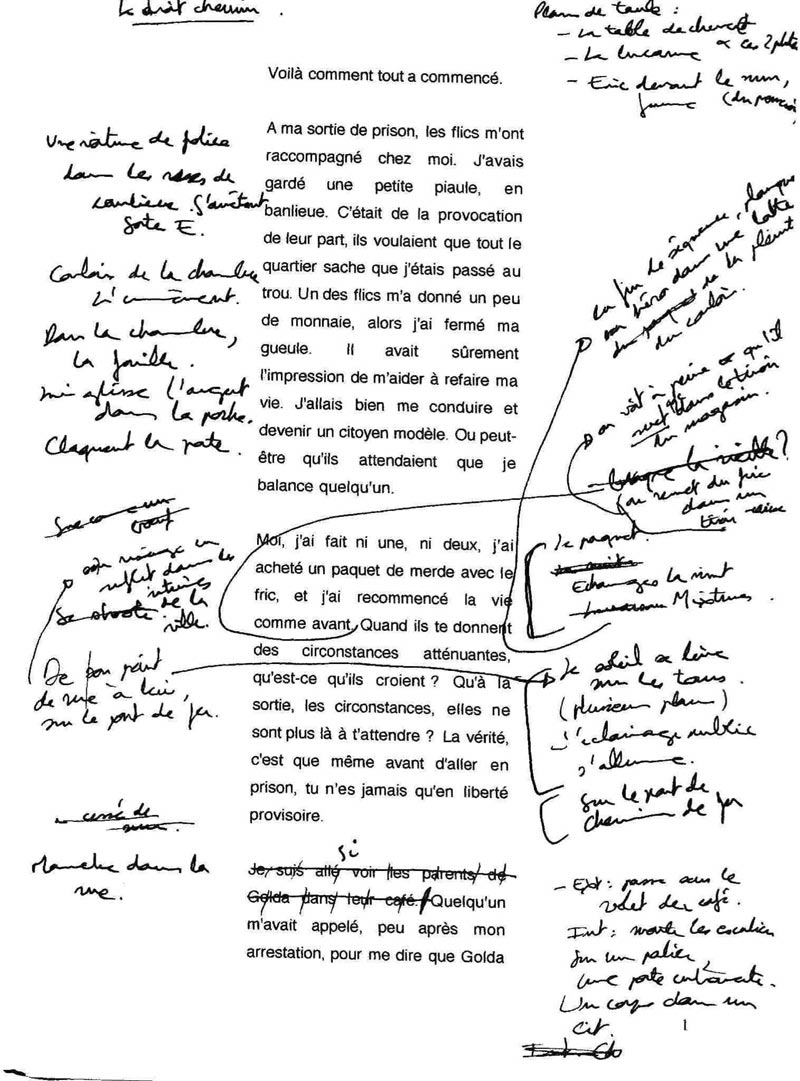 Le droit chemin.
Plan de
- La table de chevet
- La lucarne
- Eric devant le mur,
Voilà comment tout a commencé.
A ma sortie de prison, les flics m'ont
raccompagné chez moi. J'avais
gardé une petite piaule, en
banlieue. C'était de la provocation
de leur part, ils voulaient que tout le
quartier sache que j'étais passé au
trou. Un des flics m'a donné un peu
de monnaie, alors j'ai fermé ma
gueule. Il avait sûrement
l'impression de m'aider à refaire ma
vie. J'allais bien me conduire et
devenir un citoyen modèle. Ou peut-
être qu'ils attendaient que je
balance quelqu'un.
Moi, j'ai fait ni une, ni deux, j'ai
acheté un paquet de merde avec le
fric, et j'ai recommencé la vie
comme avant. Quand ils te donnent
des circonstances atténuantes,
qu'est-ce qu'ils croient ? Qu'à la
sortie, les circonstances, elles ne
sont plus là à t'attendre ? La vérité,
c'est que même avant d'aller en
prison, tu n'es jamais qu'en liberté
provisoire.
Je suis allé voir les parents de
Golda dans leur café. Quelqu'un
m'avait appelé, peu après mon
arrestation, pour me dire que Golda
Une voiture de police
dans les rues de
banlieue. S'arrêtant
Couloir de la chambre
Dans la chambre,
la fouille.
lui glisse l'argent
dans la poche.
Claquent la porte.
son visage en
reflet dans les
vitrines
de la
ville.
De son point
de vue à lui,
sur le pont de fer.
Marche dans la
rue.
en fin de séquence, planque
son héros dans une latte
de la plinthe
du couloir.
on voit à peine qu'il
met dans le tiroir
du magasin.
dans un
tiroir
Le paquet.
Echanges la nuit
Le soleil se lève
sur les tours.
(plusieurs plans)
L'éclairage public
s'allume.
Sur le pont de
chemin de fer
- Ext : passe sous le
volet du café.
Int : monte les escaliers
sur un palier,
une porte entrouverte.
Un corps dans un
lit.
1